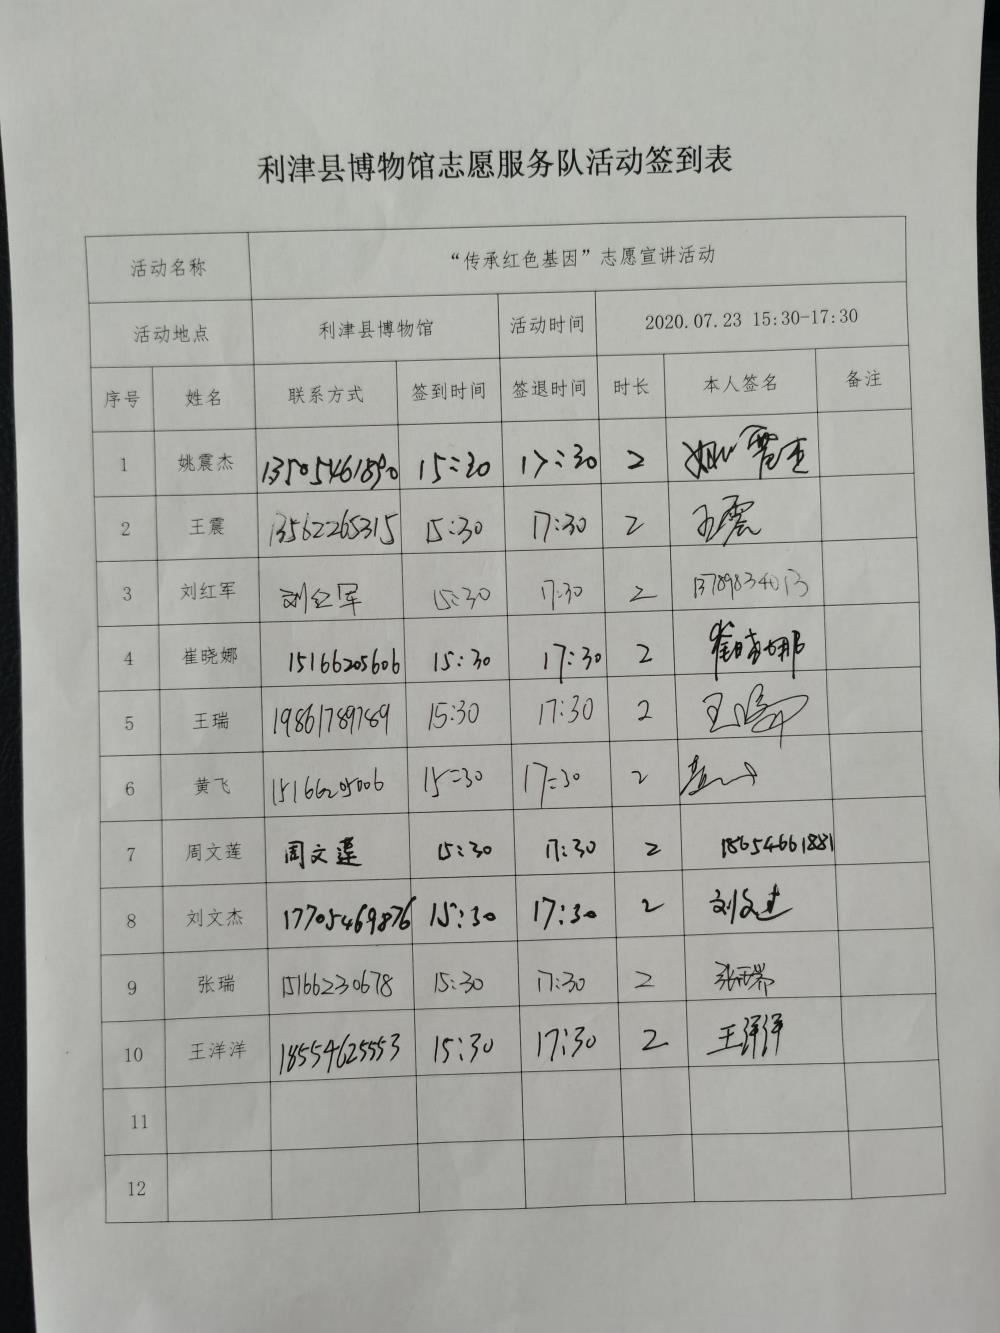 利津县博物馆志愿服务队活动签到表
活动名称 “传承红色基因”志愿宣讲活动
活动地点 利津县博物馆 活动时间 2020.07.23 15:30-17:30
序号 姓名 联系方式 签到时间 签退时间 时长 本人签名 备注
1 姚震杰 13505461890 15:30 17:30 2 姚震杰
2 王震 13562265315 15:30 17:30 2 王震
3 刘红军 刘红军 15:30 17:30 2 13789834013
4 崔晓娜 15166205606 15:30 17:30 2 崔晓娜
5 王瑞 19861789789 15:30 17:30 2 王瑞
6 黄飞 15166205006 15:30 17:30 2
7 周文莲 周文莲 15:30 17:30 2 18654661881
8 刘文杰 17705469876 15:30 17:30 2 刘文杰
9 张瑞 15166230678 15:30 17:30 2 张瑞
10 王洋洋 18554625553 15:30 17:30 2 王洋洋
11
12